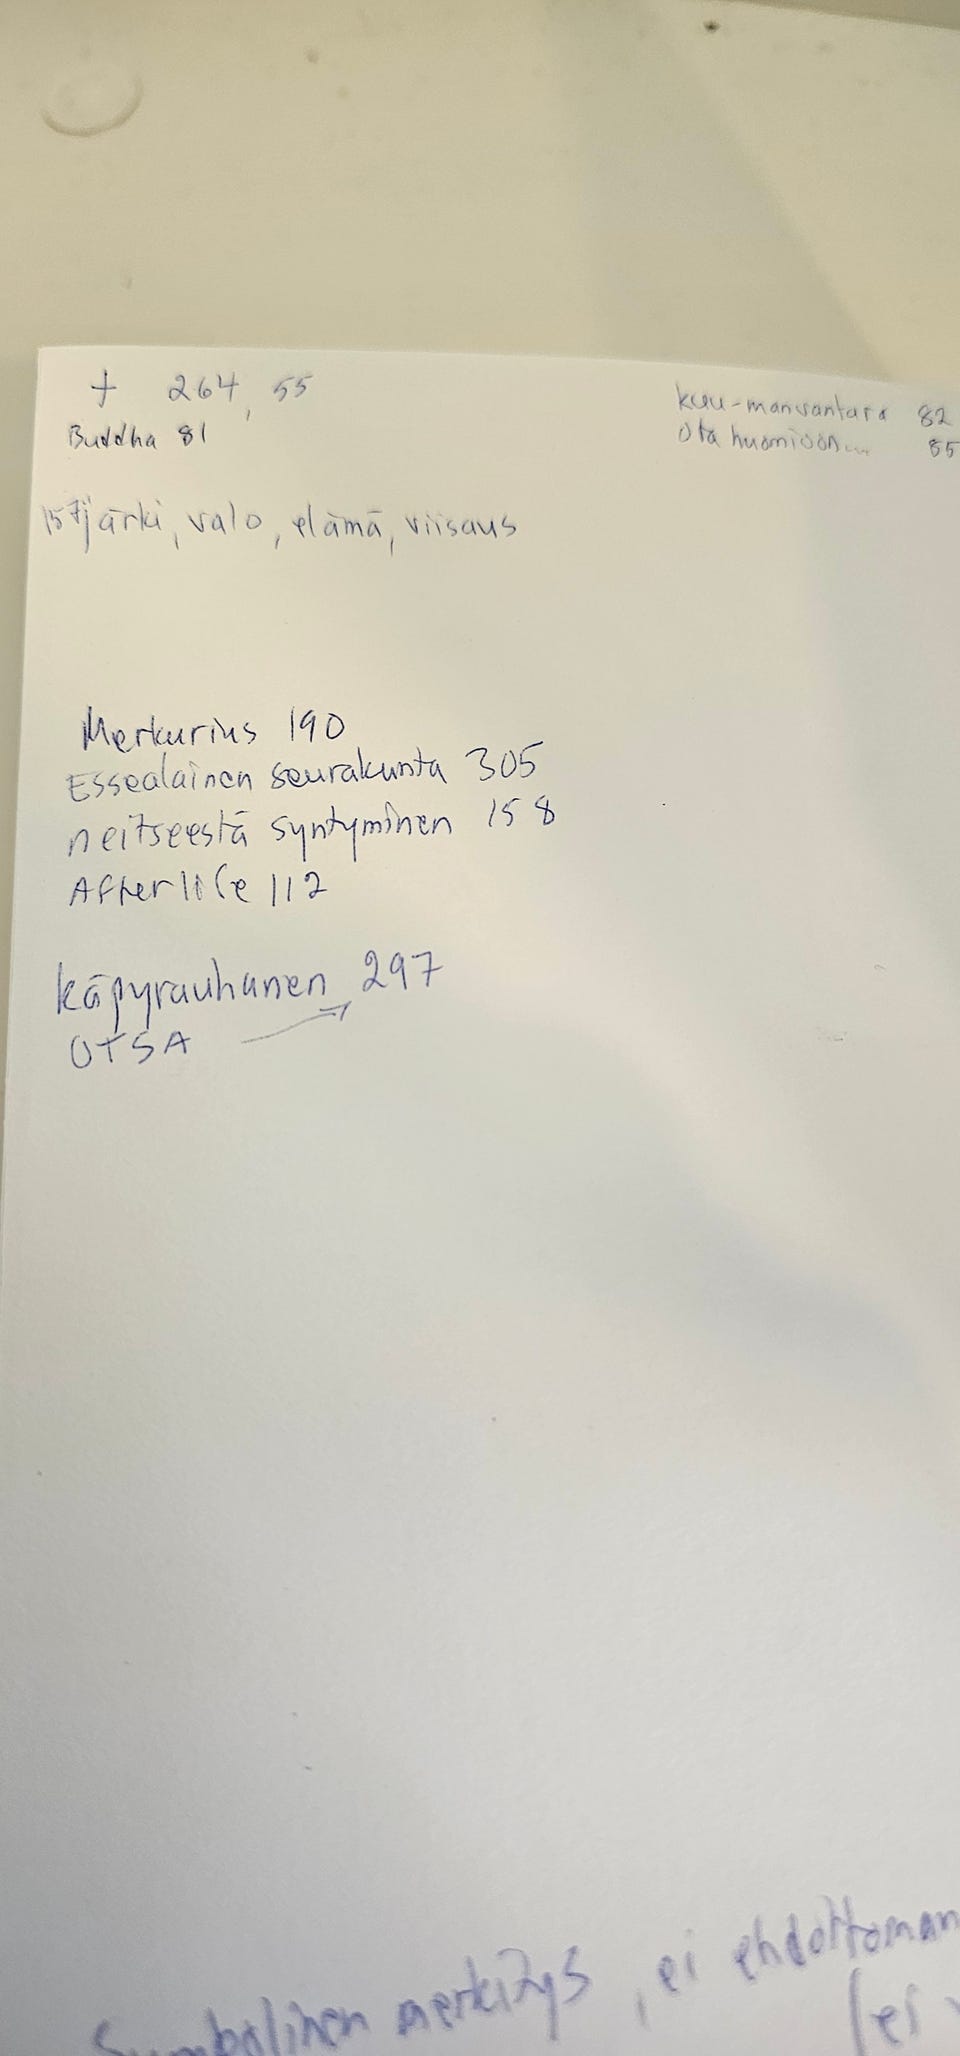 † 264, 55
Buddha 81
kuu-manvantara 82
Ota huomioon... 85
157 järki, valo, elämä, viisaus
Merkurius 190
Essealainen seurakunta 305
neitseestä syntyminen 158
Afterlife 112
käpyrauhanen 297
OTSA →
Symbolinen merkitys, ei ehdottoman
(ei